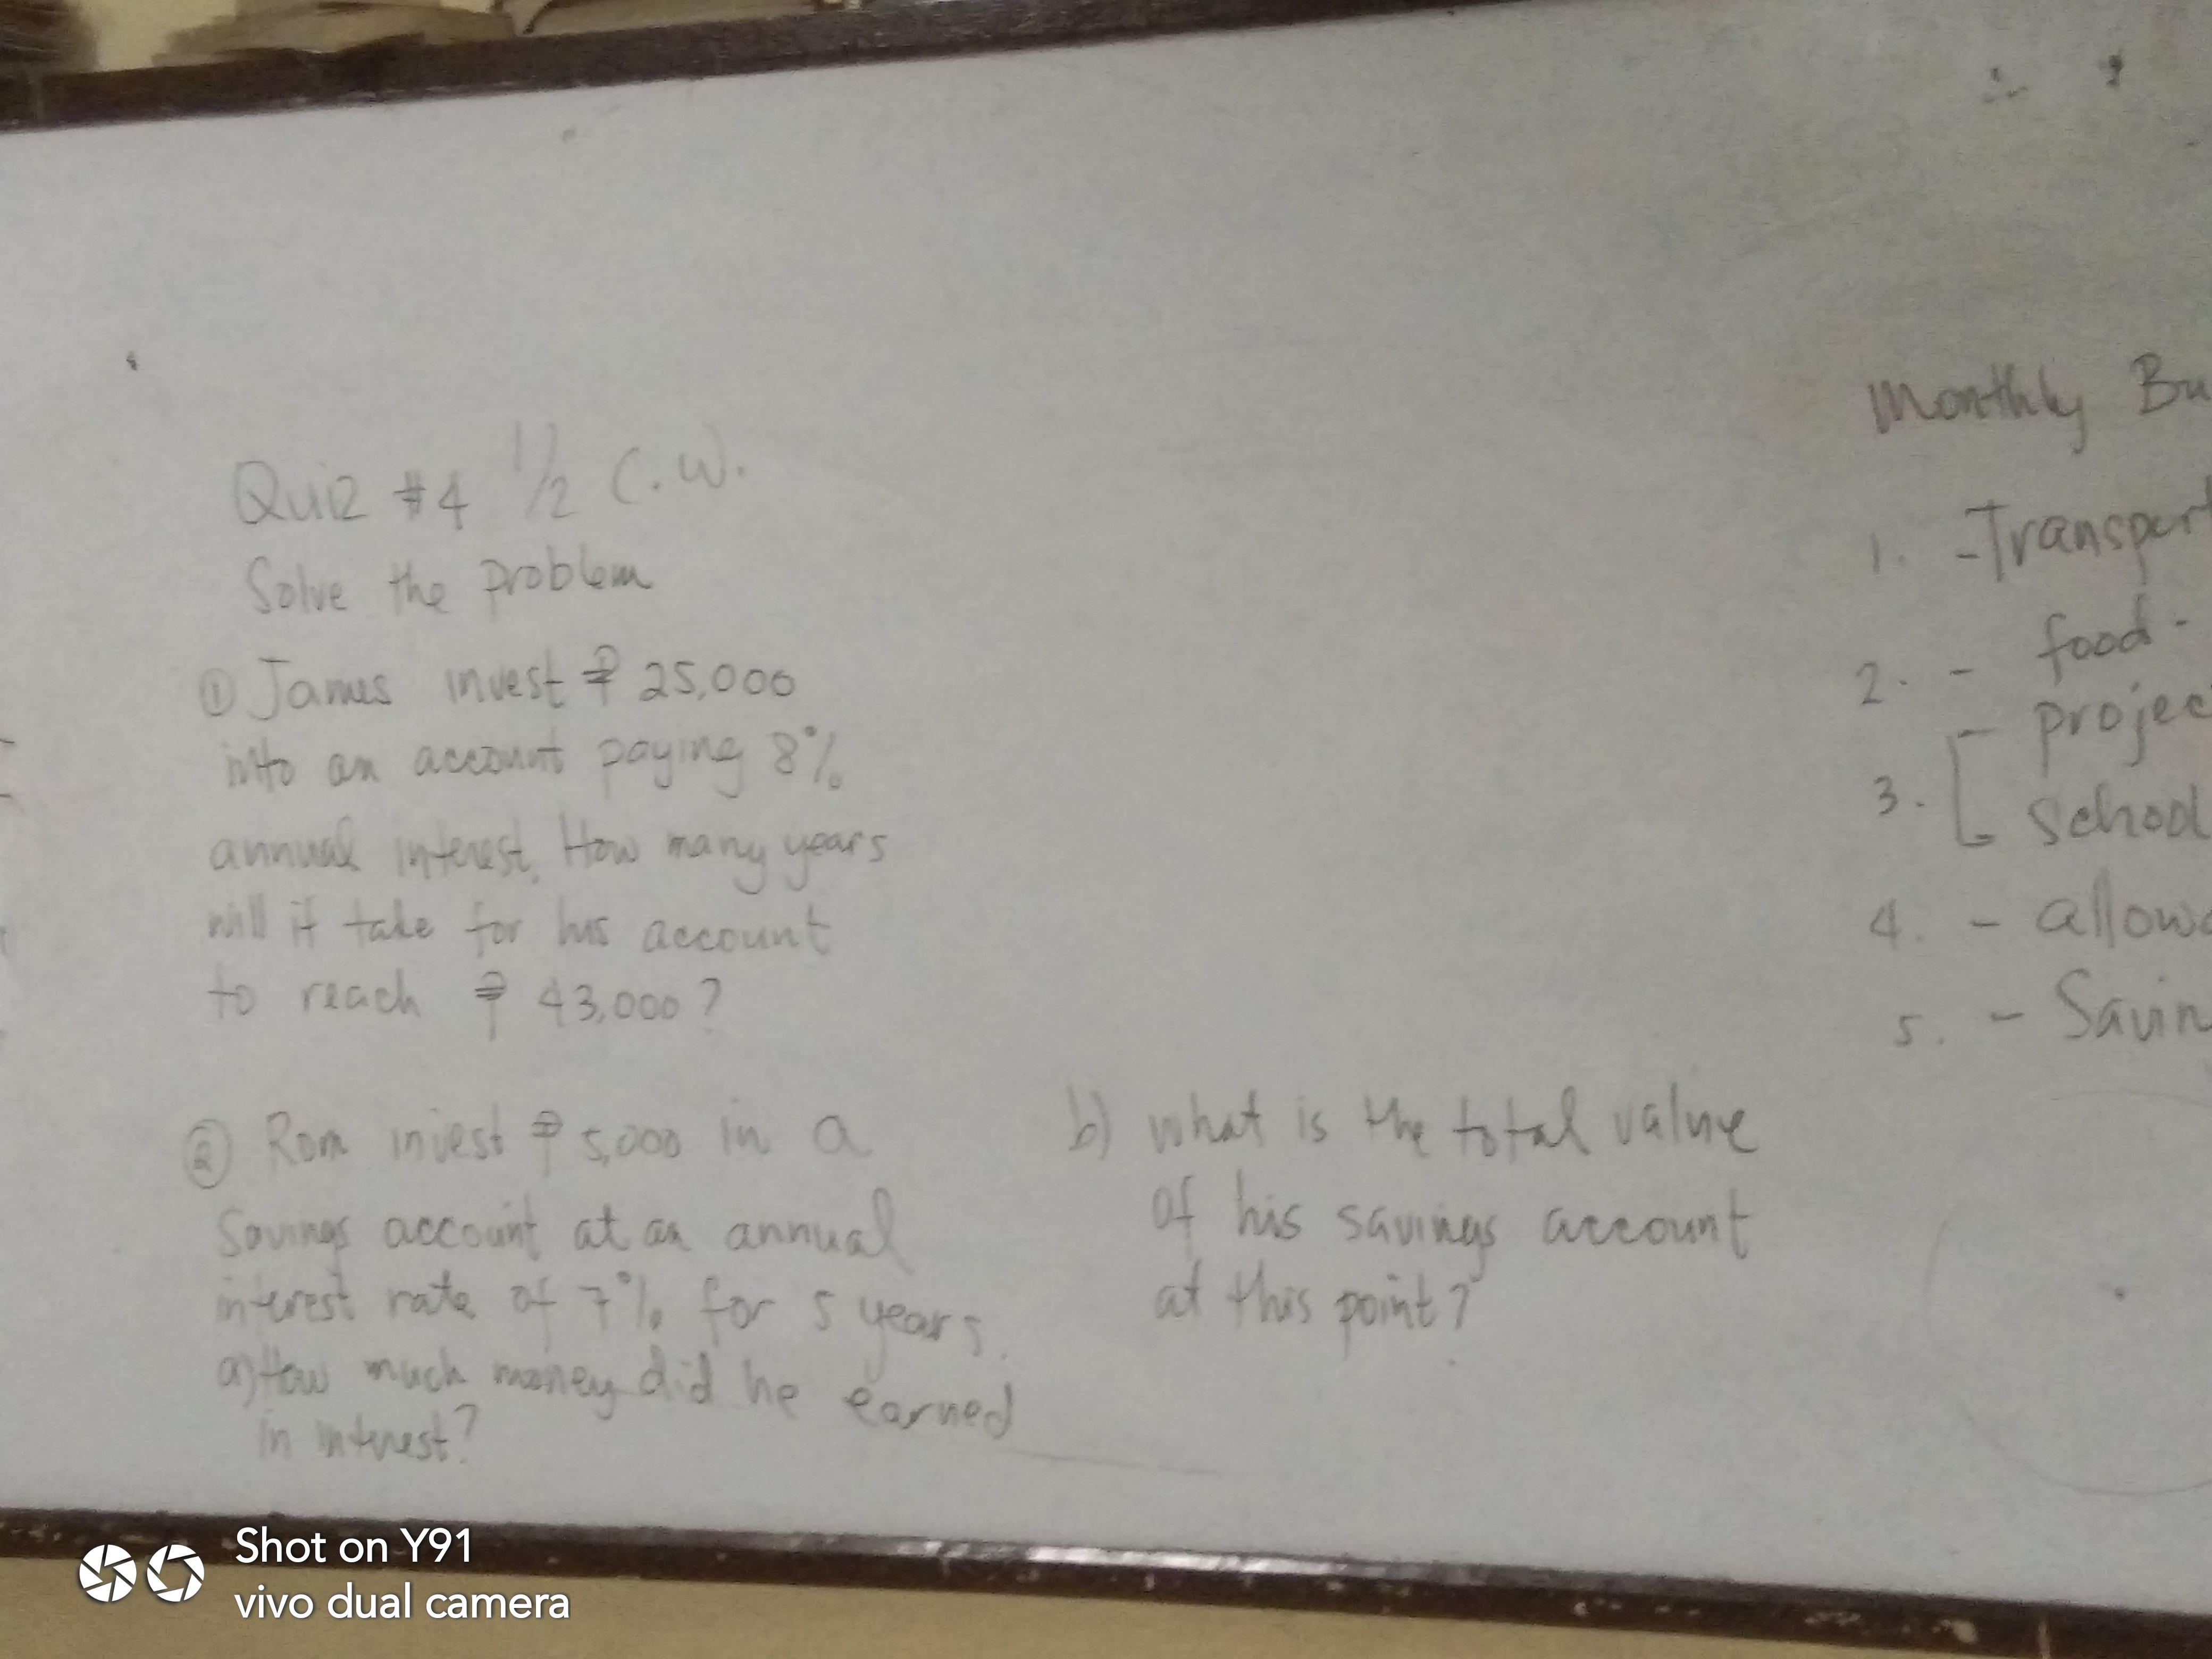 Quiz #4 1/2 C.W.
Solve the problem
① James invest ₱ 25,000
into an account paying 8%
annual interest. How many years
will it take for his account
to reach ₱ 43,000?
② Rom invest ₱ 5,000 in a
Savings account at an annual
interest rate of 7% for 5 years.
a) How much money did he earned
in interest?
b) what is the total value
of his savings account
at this point?
Monthly Bu
1. - Transport
2. - food -
- projec
3. - School
4. - allowa
5. - Savin
Shot on Y91
vivo dual camera